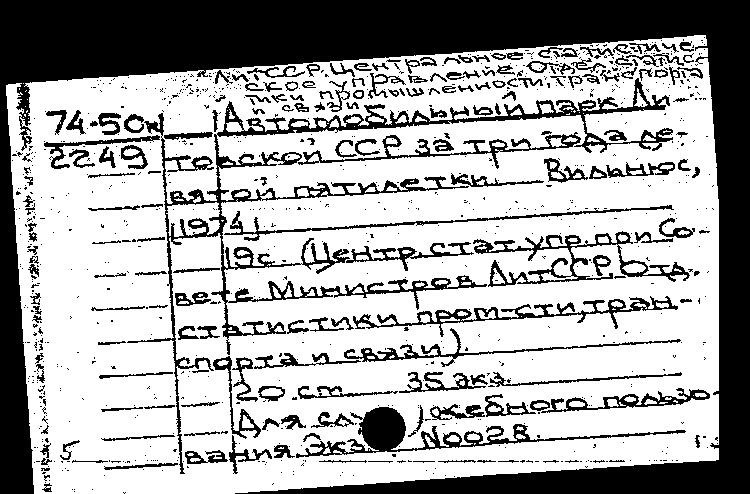 ЛитССР. Центральное статистиче-
ское управление. Отдел статис-
тики промышленности, транспорта
и связи
74-50к
2249
Автомобильный парк Ли-
товской ССР за три года де-
вятой пятилетки. Вильнюс,
[1974]
19с. (Центр. стат. упр. при Со-
вете Министров ЛитССР. Отд.
статистики пром-сти, тран-
спорта и связи).
20 cm 35 экз.
Для служебного пользо-
вания. Экз. N0028.
5